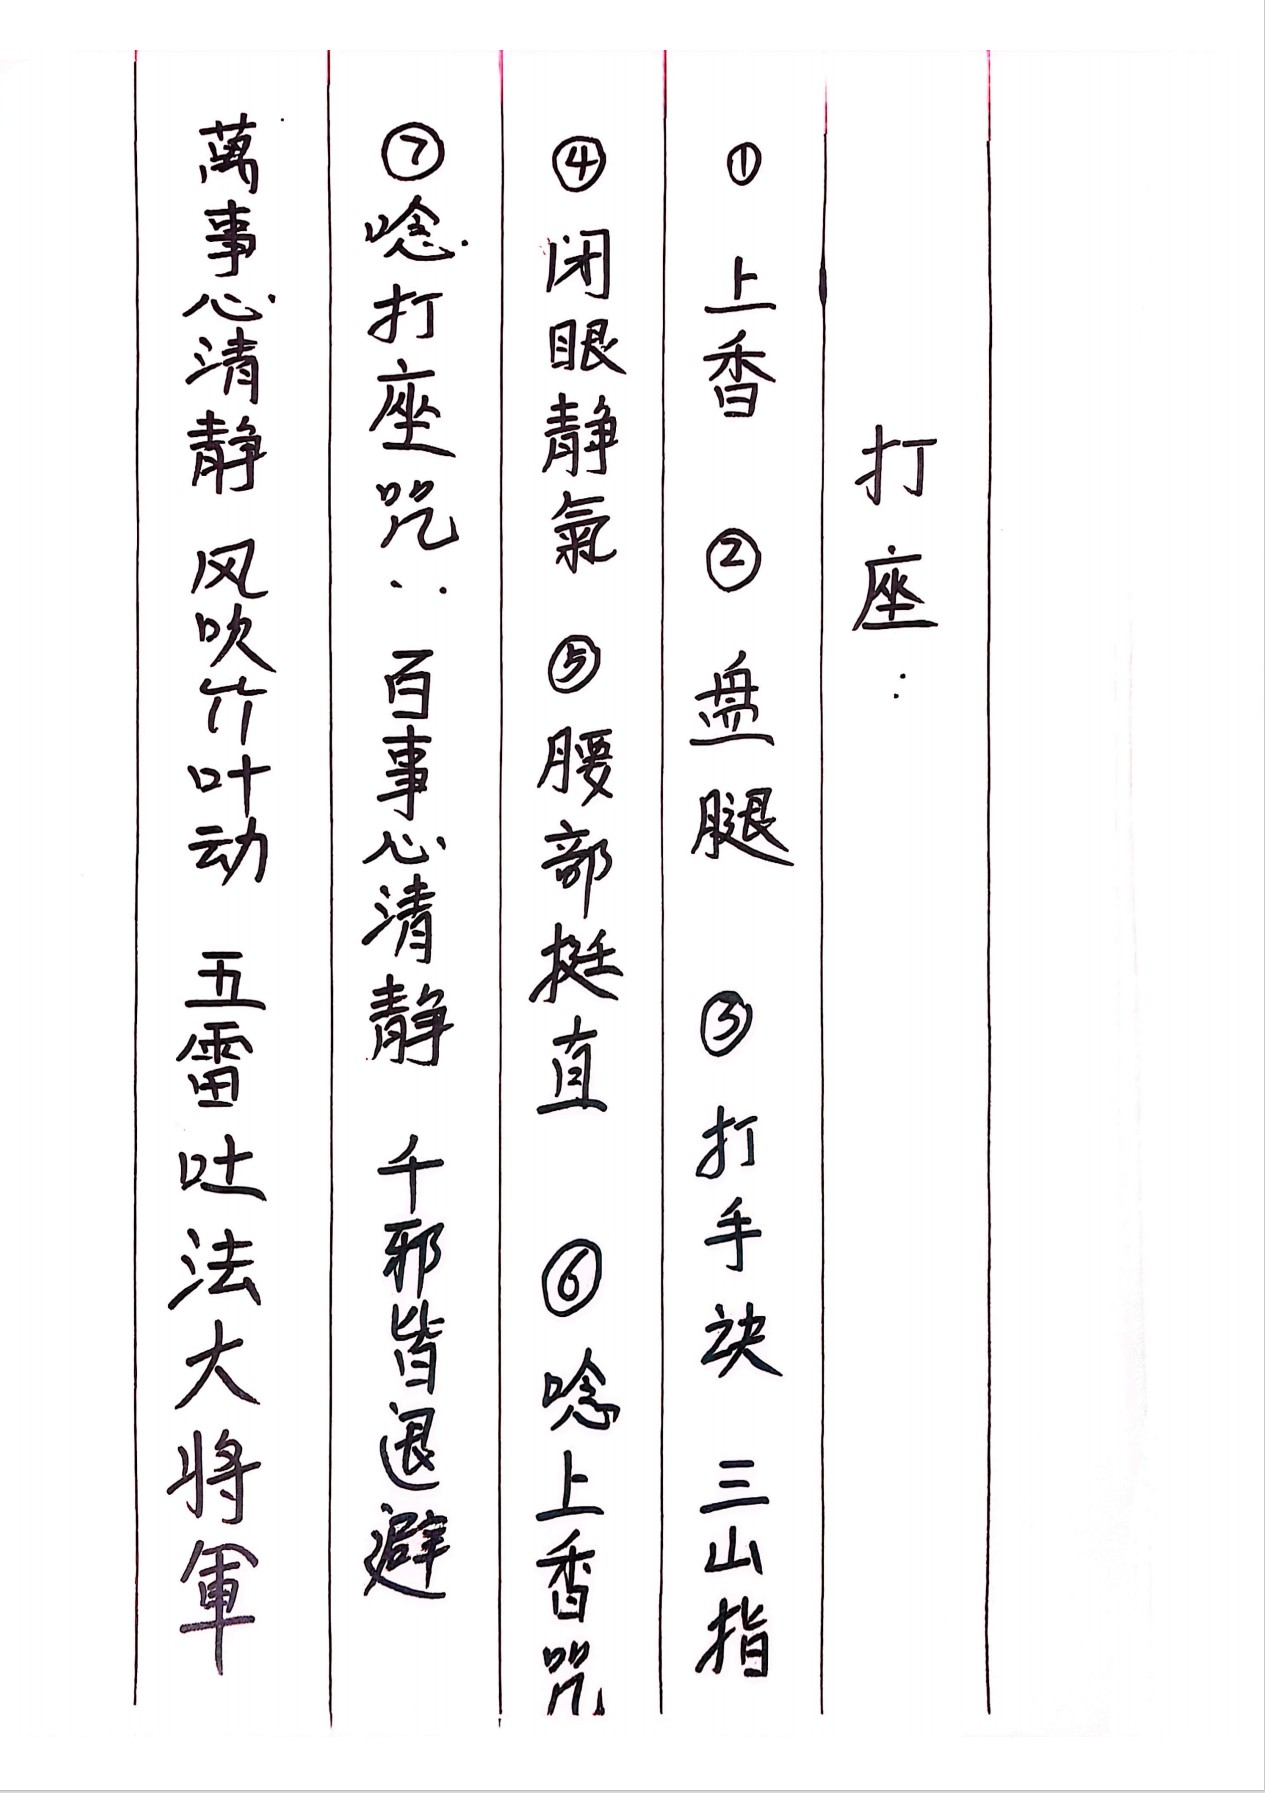 打座：
① 上香 ② 盘腿 ③ 打手诀 三山指
④ 闭眼静氣 ⑤ 腰部挺直 ⑥ 唸上香咒
⑦ 唸打座咒： 百事心清静 千邪皆退避
萬事心清静 风吹竹叶动 五雷吐法大将軍